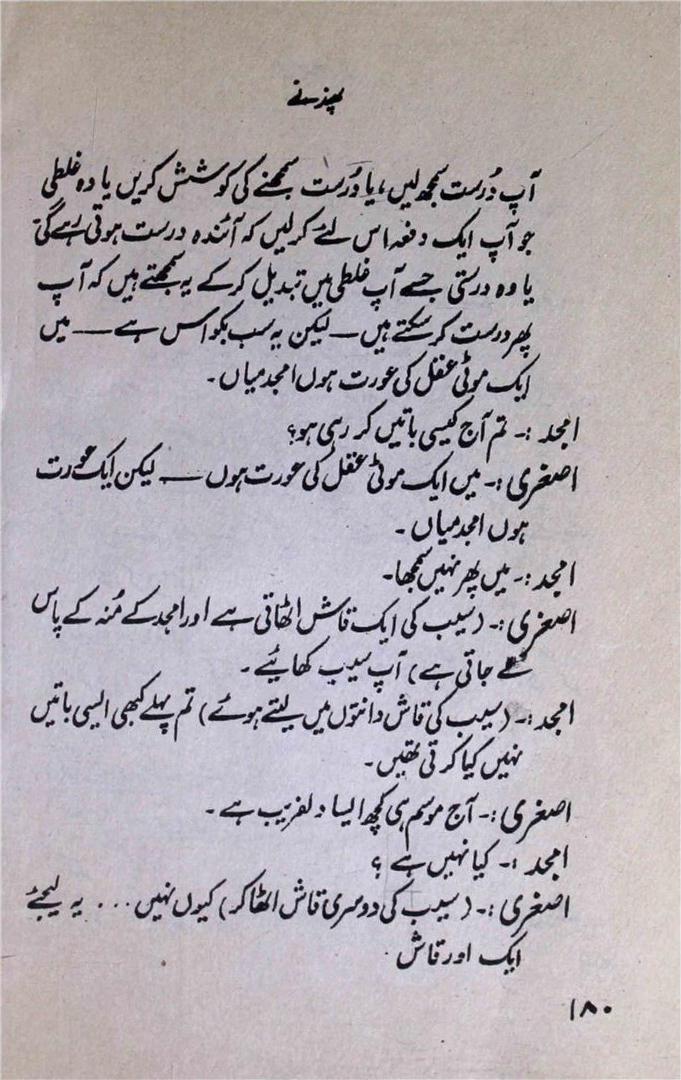 پھندنے
آپ دُرست سمجھ لیں، یا دُرست سمجھنے کی کوشش کریں یا وہ غلطی
جو آپ ایک دفعہ اس لئے کرلیں کہ آئندہ درست ہوتی رہے گی
یا وہ درستی جسے آپ غلطی میں تبدیل کرکے یہ سمجھتے ہیں کہ آپ
پھر درست کر سکتے ہیں — لیکن یہ سب بکواس ہے — میں
ایک موٹی عقل کی عورت ہوں امجد میاں۔
امجد :۔ تم آج کیسی باتیں کر رہی ہو؟
اصغری :۔ میں ایک موٹی عقل کی عورت ہوں — لیکن ایک عورت
ہوں امجد میاں ۔
امجد :۔ میں پھر نہیں سمجھا۔
اصغری :۔ (سیب کی ایک قاش اٹھاتی ہے اور امجد کے مُنہ کے پاس
لے جاتی ہے) آپ سیب کھائیے ۔
امجد :۔ (سیب کی قاش دانتوں میں لیتے ہوئے) تم پہلے کبھی ایسی باتیں
نہیں کیا کرتی تھیں۔
اصغری :۔ آج موسم ہی کچھ ایسا دلفریب ہے ۔
امجد :۔ کیا نہیں ہے ؟
اصغری :۔ (سیب کی دوسری قاش اٹھا کر) کیوں نہیں ... یہ لیجئے
ایک اور قاش ۔
۱۸۰